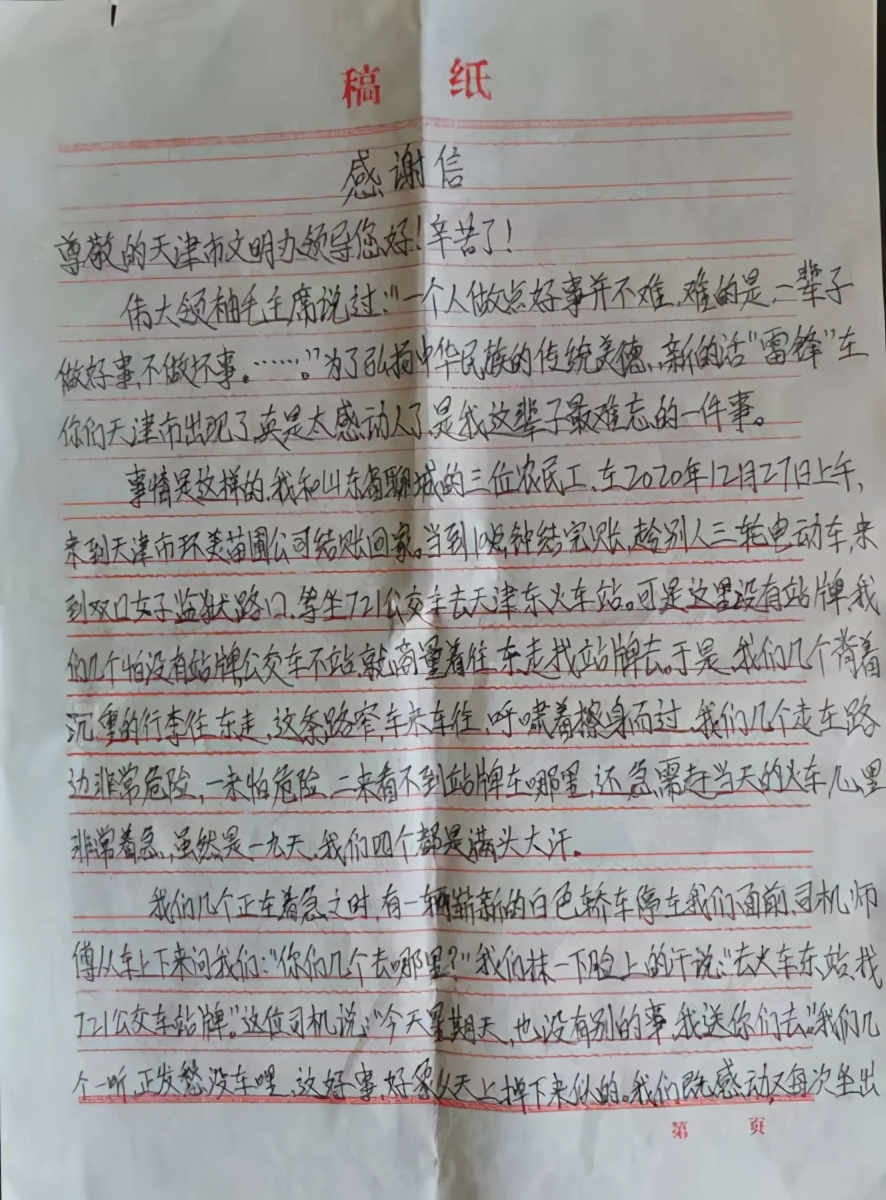 稿 纸
感谢信
尊敬的天津市文明办领导您好！辛苦了！
伟大领袖毛主席说过：“一个人做点好事并不难，难的是，一辈子
做好事，不做坏事。……。”为了弘扬中华民族的传统美德，新的活“雷锋”在
你们天津市出现了，真是太感动人了，是我这辈子最难忘的一件事。
事情是这样的，我和山东省聊城的三位农民工，在2020年12月27日上午，
来到天津市环美苗圃公司结账回家。当到10点钟结完账，趁别人三轮电动车，来
到双口女子监狱路口，等坐721公交车去天津东火车站。可是这里没有站牌，我
们几个怕没有站牌，公交车不站，就商量着往东走找站牌去。于是，我们几个背着
沉重的行李往东走，这条路窄，车来车往，呼啸着擦身而过，我们几个走在路
边非常危险，一来怕危险，二来看不到站牌在哪里，还急需赶当天的火车，心里
非常着急，虽然是一九天，我们四个都是满头大汗。
我们几个正在着急之时，有一辆崭新的白色轿车停在我们面前，司机师
傅从车上下来问我们：“你们几个去哪里？”我们抹一下脸上的汗说：“去火车东站，找
721公交车站牌。”这位司机说：“今天星期天，也没有别的事，我送你们去。”我们几
个一听，正发愁没车哩，这好事，好象从天上掉下来似的。我们既感动，又每次坐出
第 页